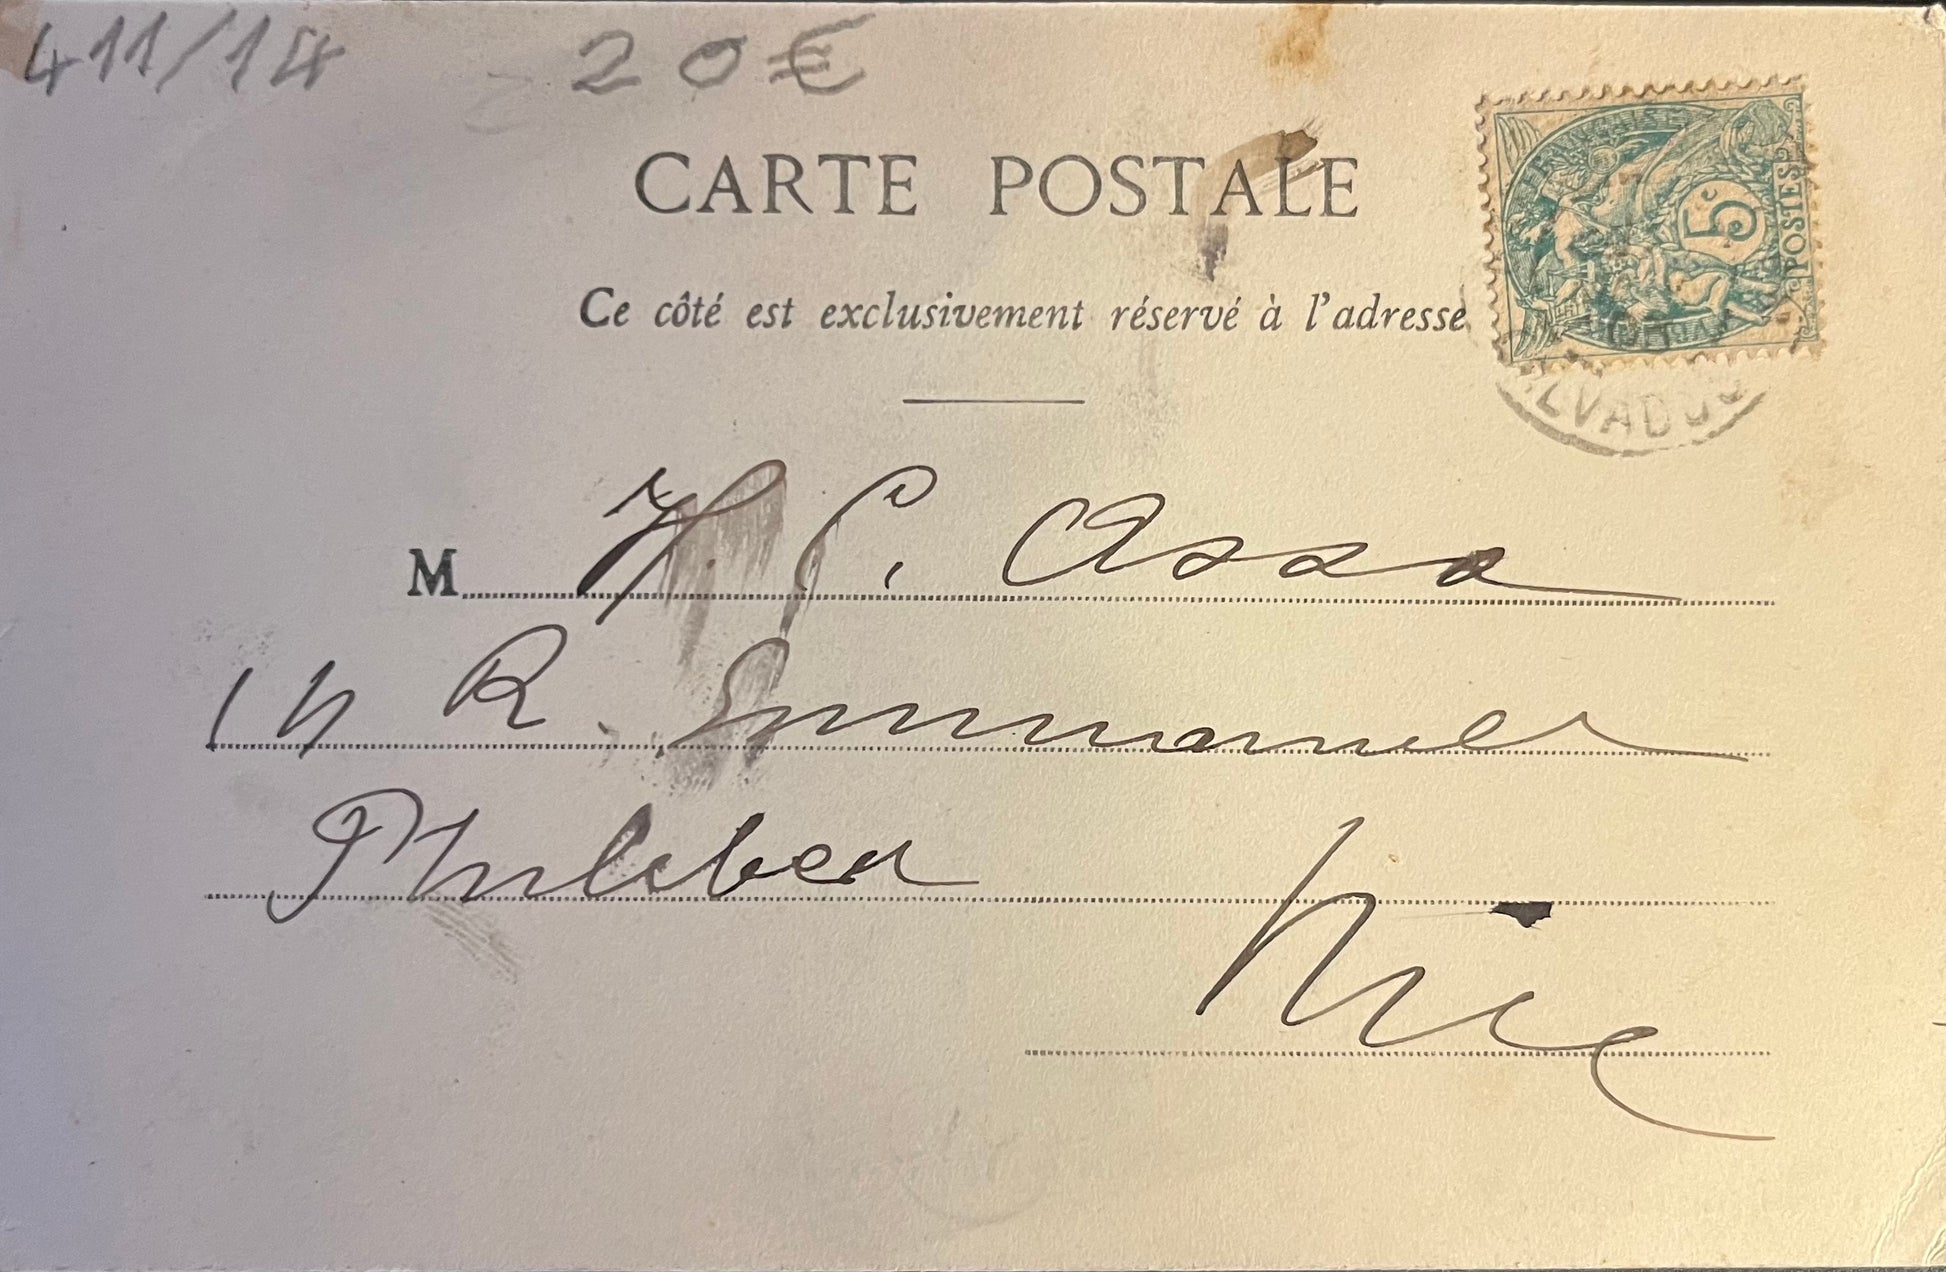 411/14 20€
CARTE POSTALE
5c
POSTES
Ce côté est exclusivement réservé à l'adresse
CALVADOS
M H. C. Assa
14 R. Emmanuel
Philebert
Nice